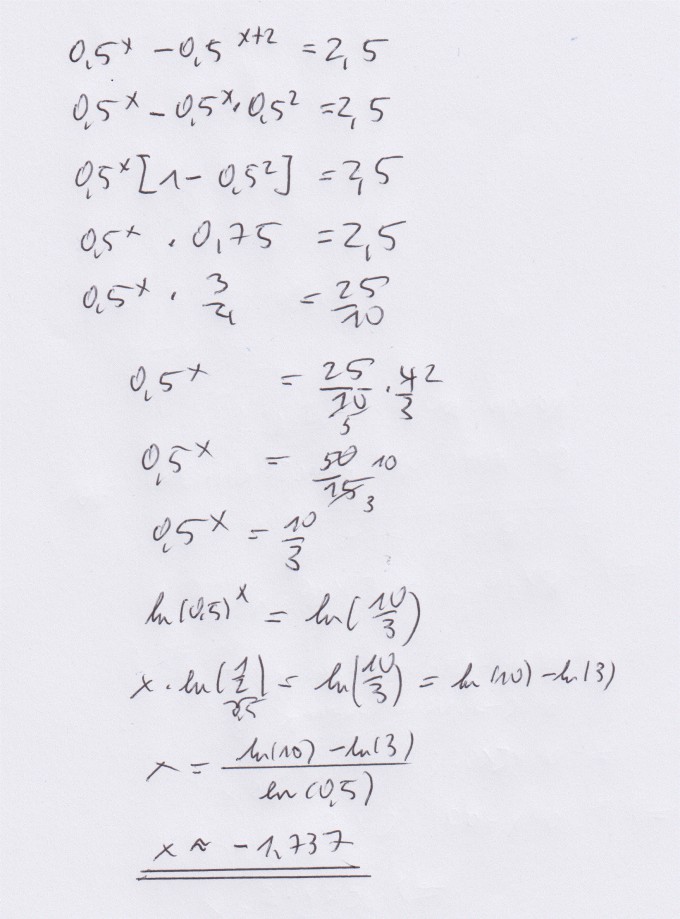 0,5^x - 0,5^(x+2) = 2,5
0,5^x - 0,5^x · 0,5^2 = 2,5
0,5^x [1 - 0,5^2] = 2,5
0,5^x · 0,75 = 2,5
0,5^x · 3/4 = 25/10
0,5^x = 25/10 5 · 4/3 2
0,5^x = 50/15 10 3
0,5^x = 10/3
ln(0,5)^x = ln(10/3)
x · ln(1/2) = ln(10/3) = ln(10) - ln(3)
0,5
x = (ln(10) - ln(3))/ln(0,5)
x ≈ -1,737